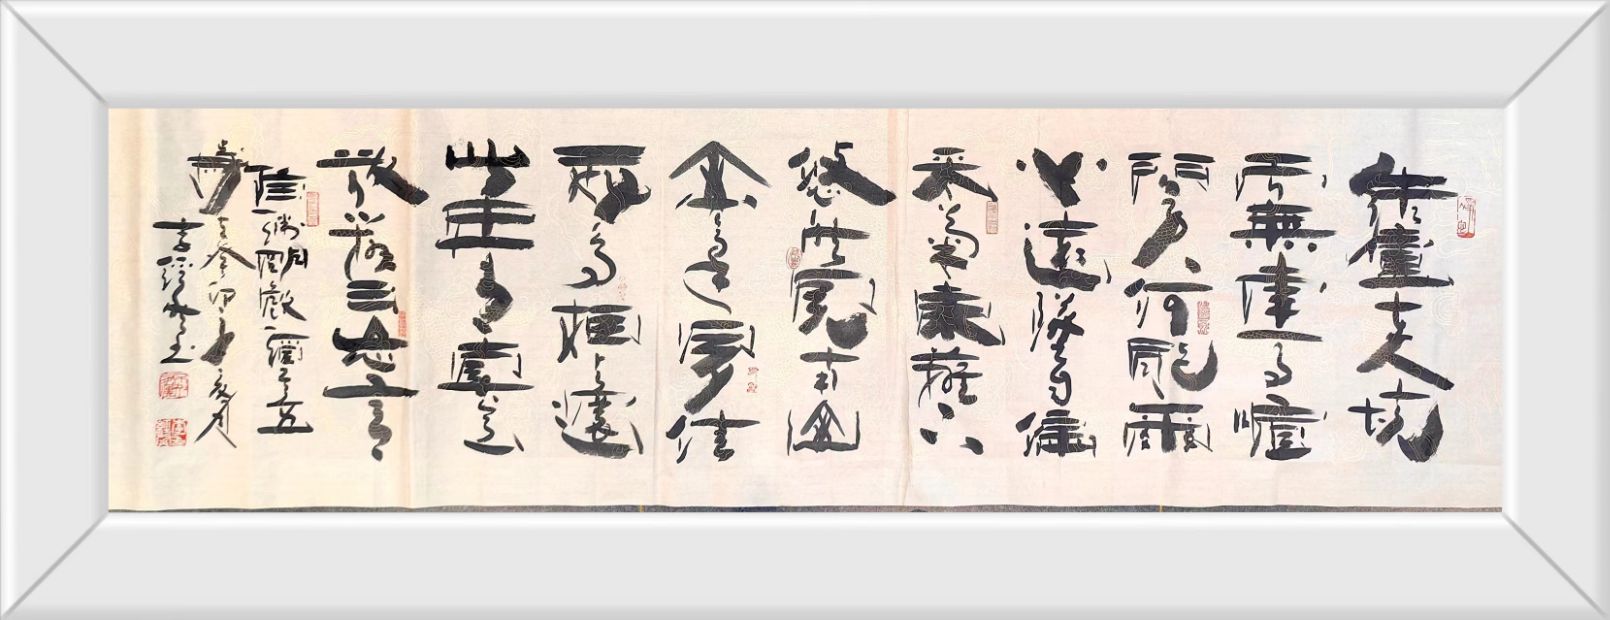 結廬在人境
而無車馬喧
問君何能爾
心遠地自偏
采菊東籬下
悠然見南山
山氣日夕佳
飛鳥相與還
此中有真意
欲辨已忘言
陶渊明飲酒之五
癸卯年夏月